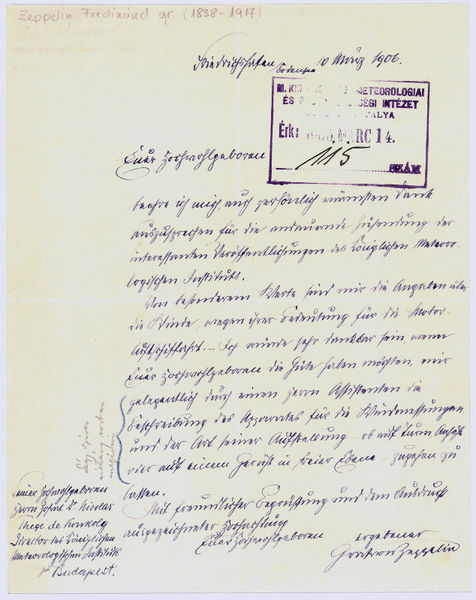 Zeppelin Ferdinánd gr. (1838-1917)
Friedrichshafen
Bodensee
10 März 1906.
METEOROLOGIAI
ÉS INTÉZET
Érk: 1906 MARC 14.
115 SZÁM
Euer Hochwohlgeboren
beehre ich mich, auch persönlich wärmsten Dank
auszusprechen für die andauernde Zusendung der
interessanten Veröffentlichungen des Königlichen Meteoro-
logischen Instituts.
Von besonderem Werte sind mir die Angaben über
die Winde, wegen ihrer Bedeutung für die Motor-
Luftschiffahrt. – Ich würde sehr dankbar sein wenn
Euer Hochwohlgeboren die Güte haben möchten, mir
gelegentlich durch einen Herrn Assistenten die
Beschreibung des Apparates für die Windmessungen
und der Art seiner Aufstellung – ob auf Turm
oder auf einem Gerüst in freier Ebene – zugehen zu
lassen.
Mit freundlicher Begrüssung und dem Ausdruck
ausgezeichneter Hochachtung
Euer Hochwohlgeboren
ergebener
Graf von Zeppelin
Seiner Hochwohlgeboren
Herrn Hofrat Dr. Nicolas
Thege de Konkoly
Director des Königlichen
Meteorologischen Instituts
Budapest.